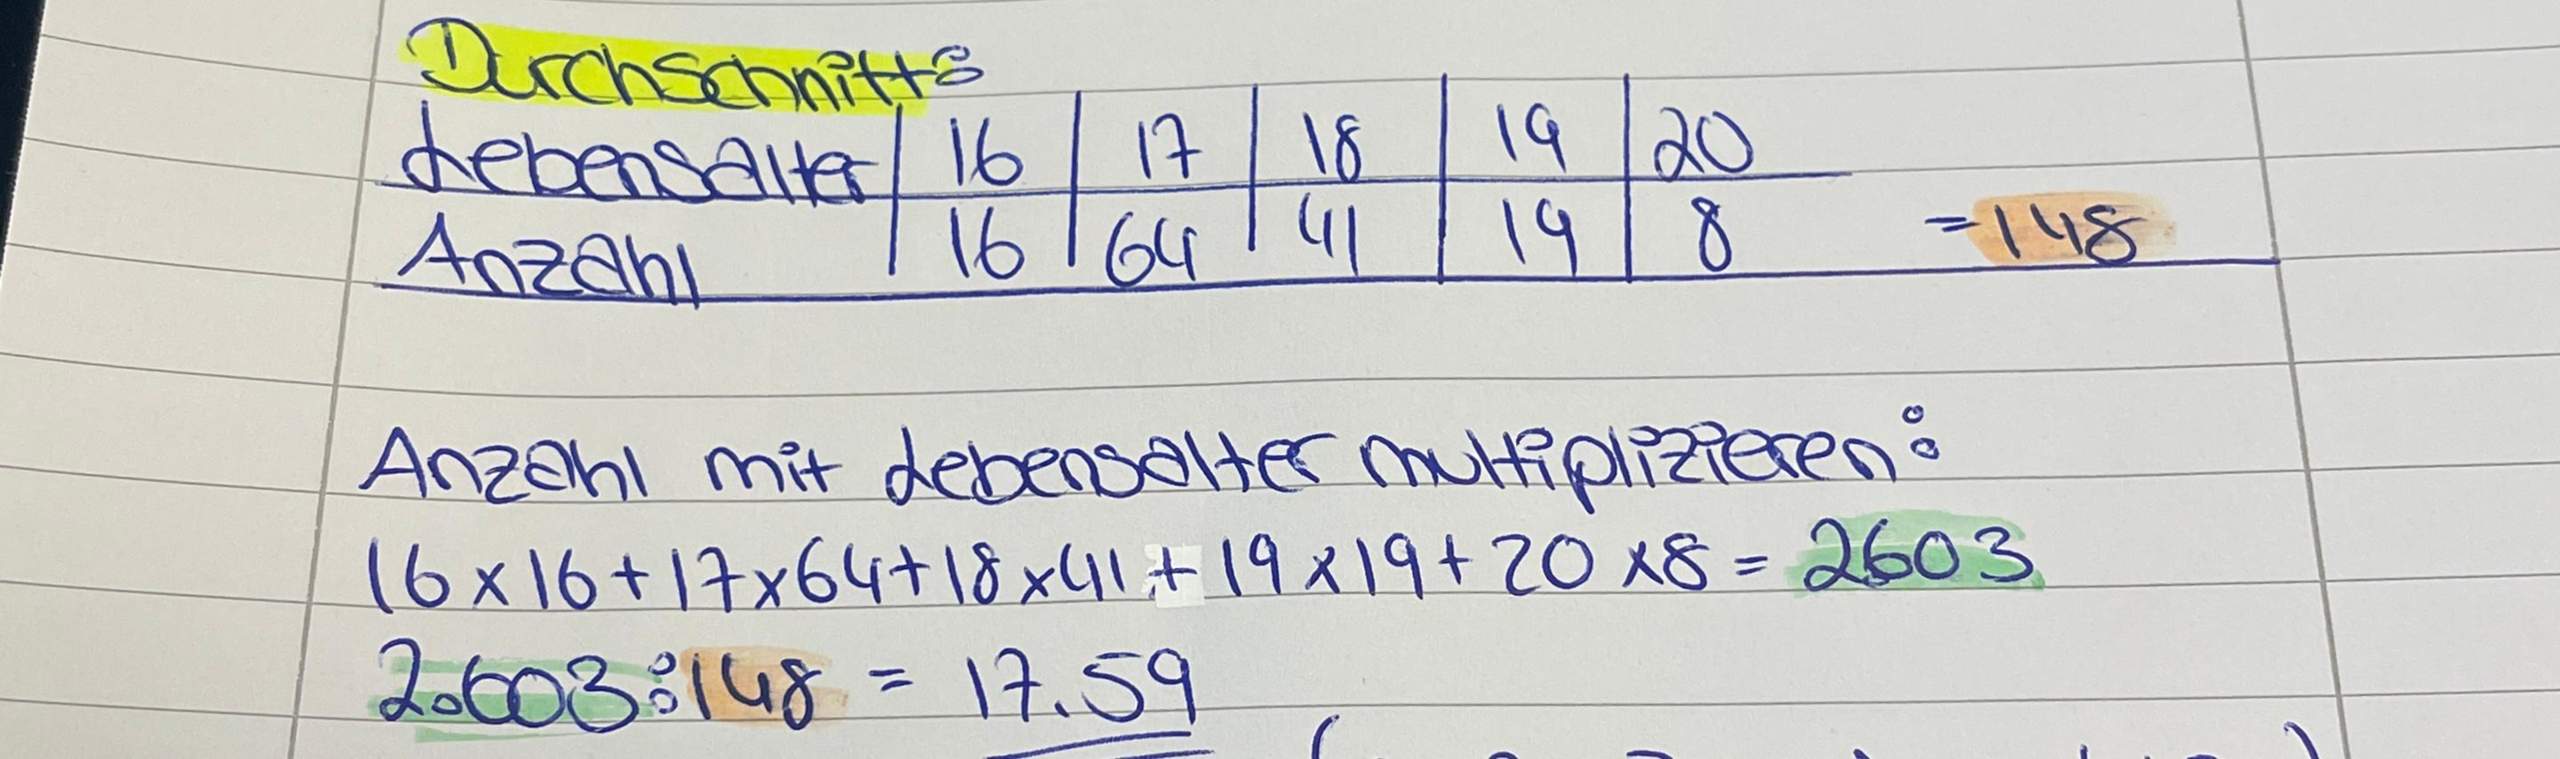 Durchschnitt:
Lebensalter | 16 | 17 | 18 | 19 | 20
Anzahl | 16 | 64 | 41 | 19 | 8 =148
Anzahl mit Lebensalter multiplizieren:
16 x 16 + 17 x 64 + 18 x 41 + 19 x 19 + 20 x 8 = 2603
2.603 : 148 = 17.59